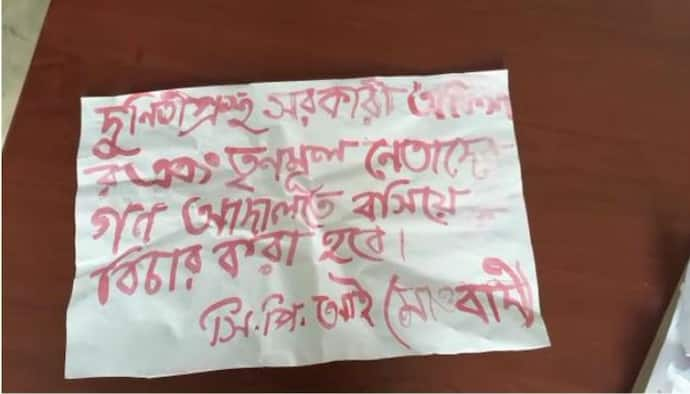 দুনিতীগ্রস্থ সরকারী অফিসা
র এবং তৃনমূল নেতাদের
গন আদালতে বসিয়ে
বিচার করা হবে।
সি.পি.আই (মাওবাদী)